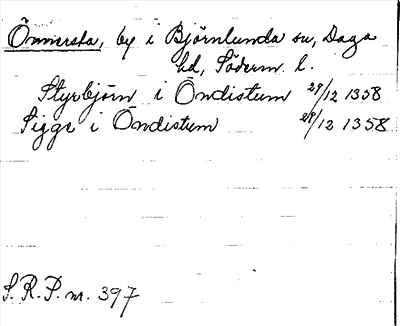 Önnersta, by i Björnlunda sn, Daga
hd, Söderm. l.
Styrbjörn i Öndistum 29/12 1358
Sigge i Öndistum 29/12 1358
S. R. P. nr. 397